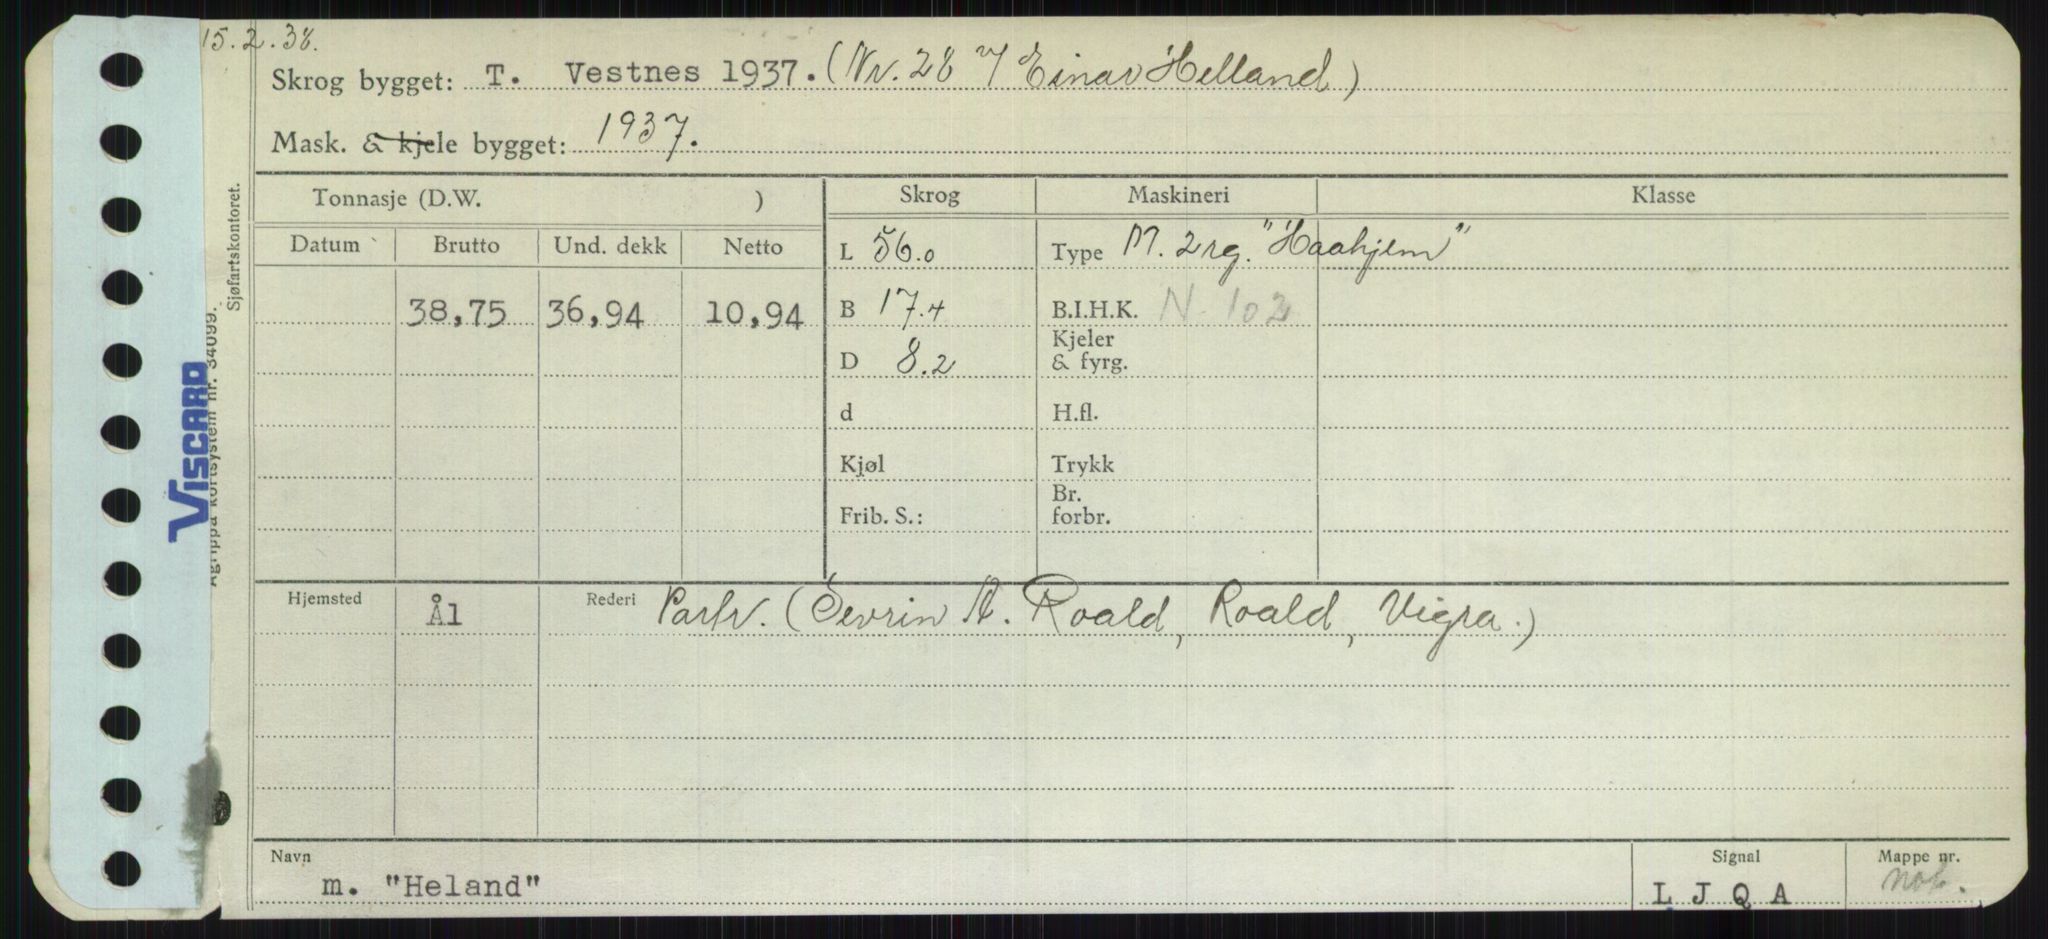 15.2.38.
Skrog bygget: T. Vestnes 1937. (Nr. 28 v/ Einar Helland)
Mask. & kjele bygget: 1937.
Tonnasje (D.W. ) Skrog Maskineri Klasse
Datum Brutto Und. dekk Netto L 56.0 Type M. 2 sg. "Haahjem"
38,75 36,94 10,94 B 17.4 B.I.H.K. N 102
D 8.2 Kjeler & fyrg.
d H.fl.
Kjøl Trykk
Frib. S.: Br. forbr.
Hjemsted Ål Rederi Partr. (Sevrin A. Roald, Roald, Vigra.)
Navn Signal Mappe nr.
m. "Heland" L J Q A not.
Sjøfartskontoret.
Agrippa kortsystem nr. 34099.
VISCARD